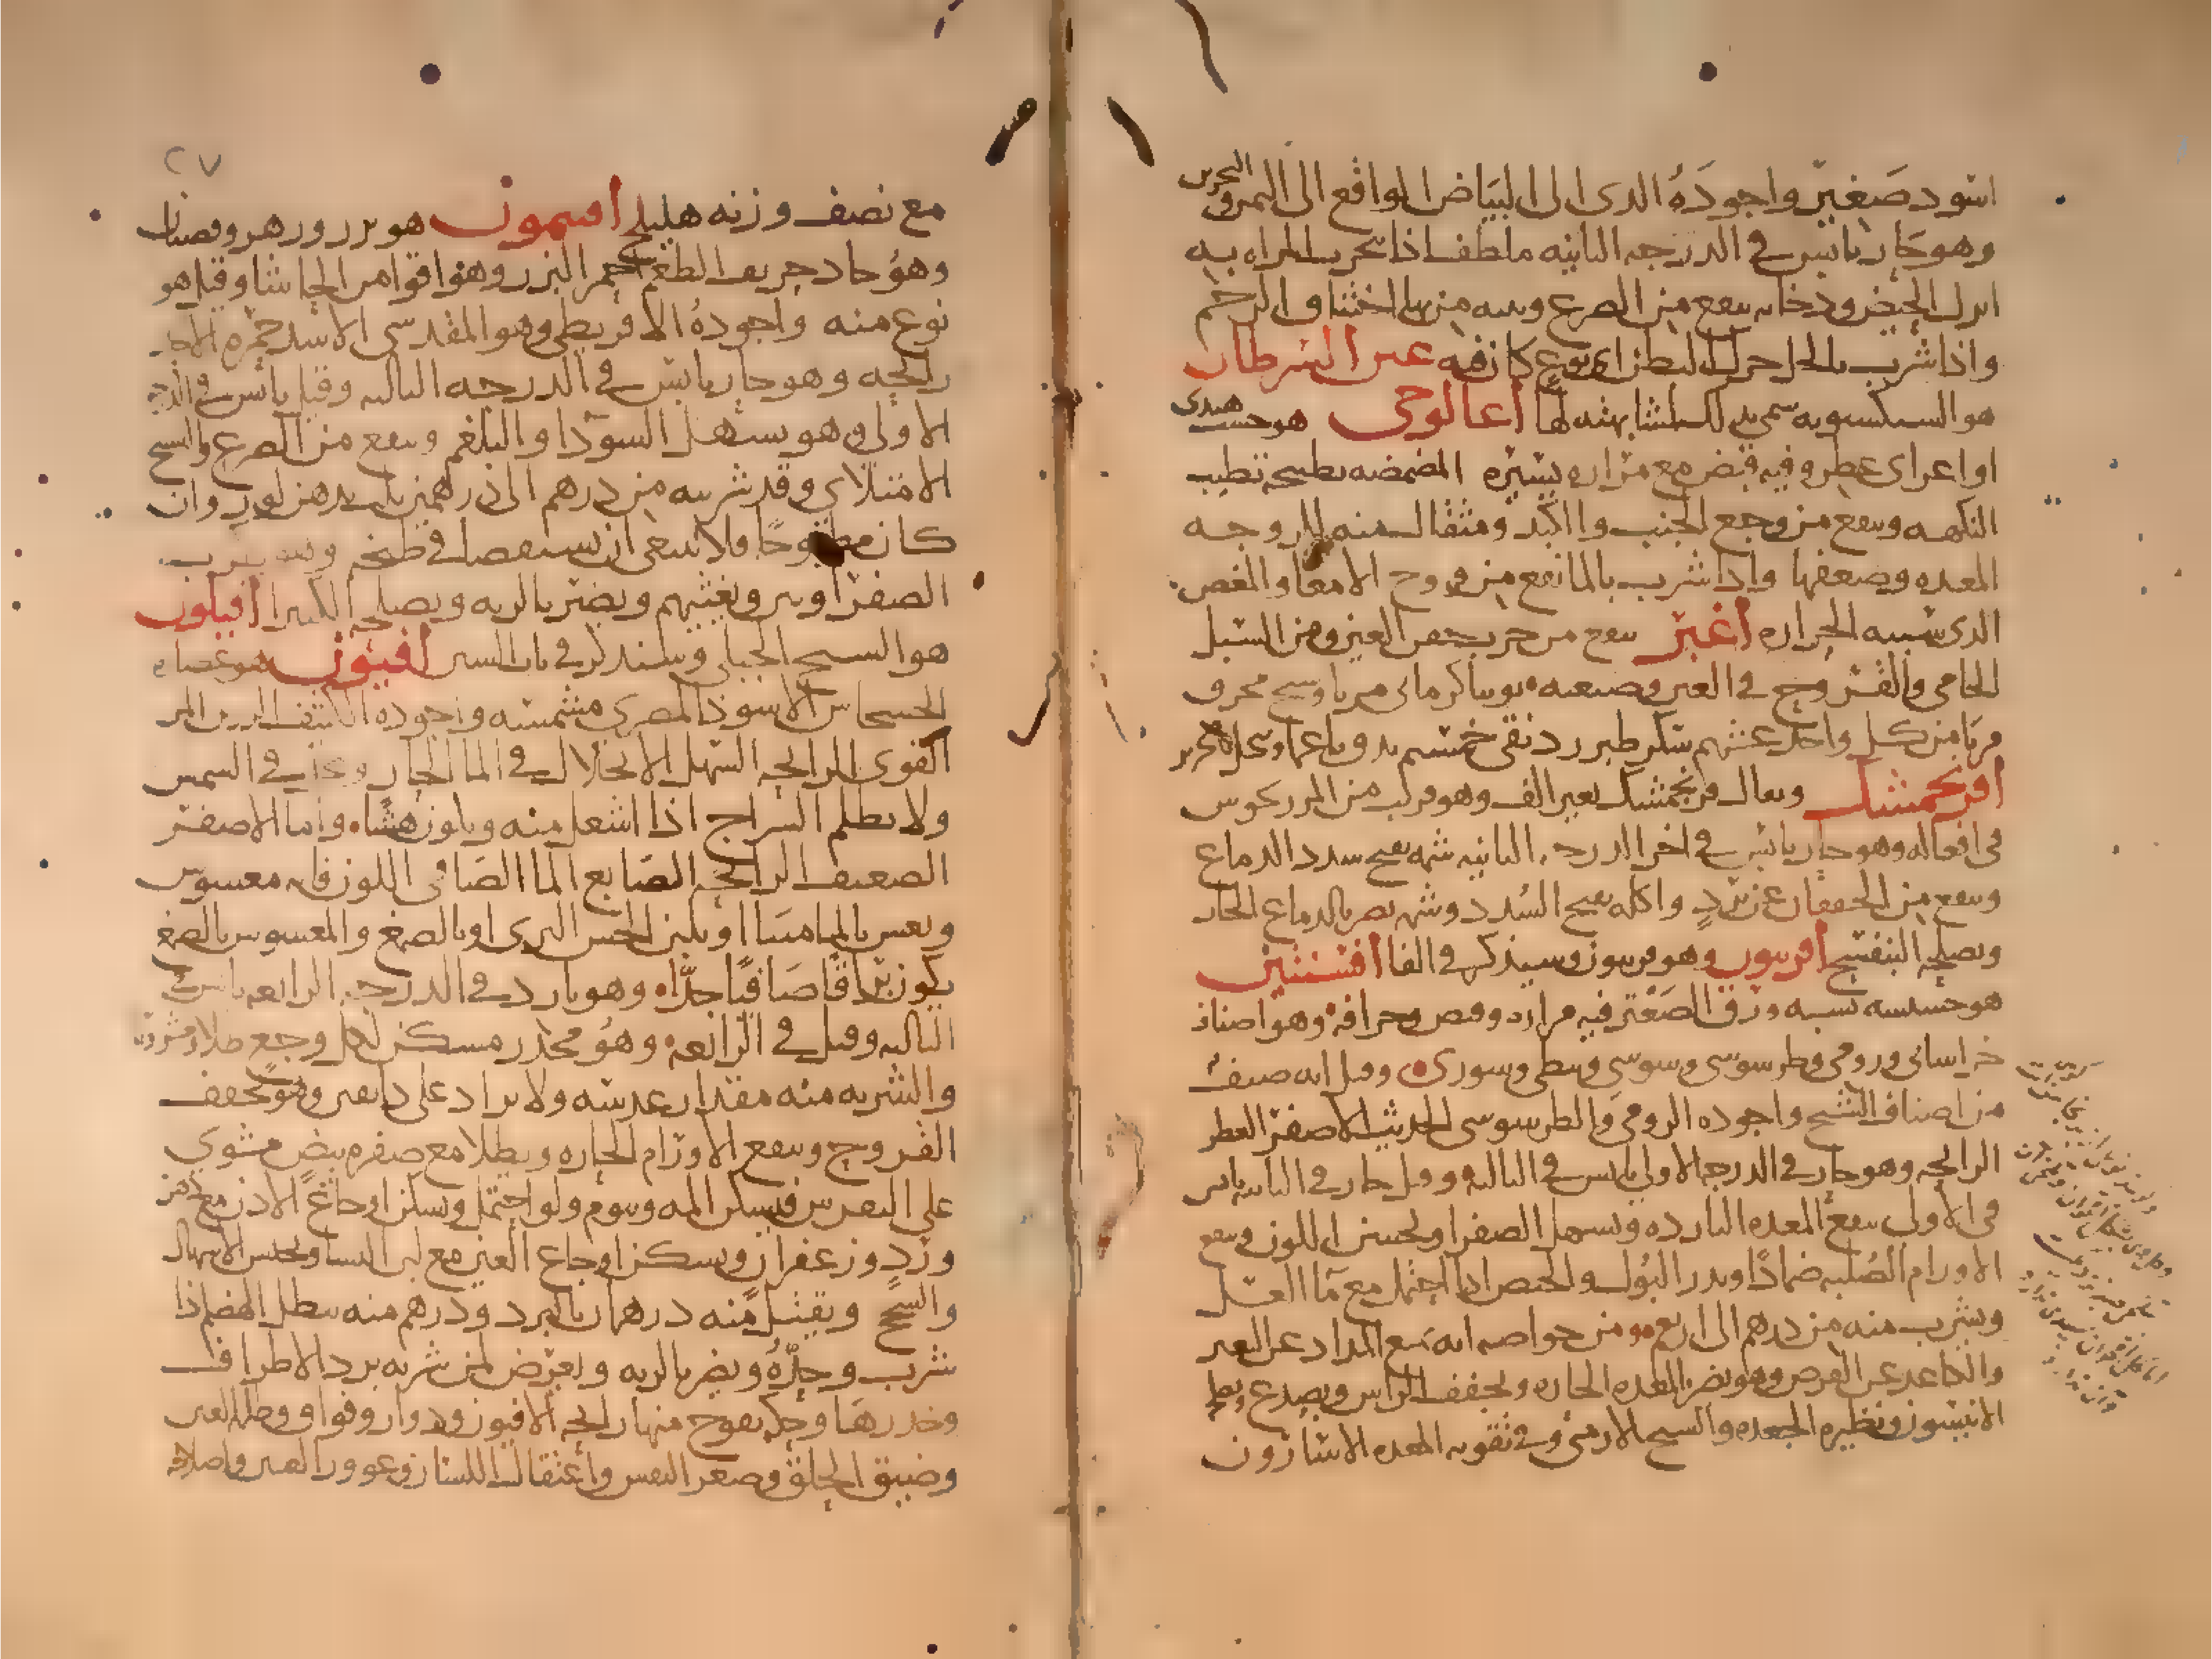 اسود صغير واجوده الذى الى البياض الواقع الى التمرى البحرى
وهو حار يابس فى الدرجه الثانيه ملطف اذا تبخرت المراه به
ادر الحيض ودخانه ينفع من الصرع وينبه من بها اختناق الرحم
واذا شرب بالخل حرك البطن اى نوع كان منه عين السرطان
هو السبستان سمى بذلك لمشابهته لها أغالوجى هو خشب هندى
او اعرابى عطر وفيه قبض مع مراره يسيره المضمضه بطبيخه تطيب
النكهه وينفع من وجع الجنب والكبد ومثقال منه للزوجه
المعده وضعفها واذا شرب بالما نفع من قروح الامعا والمغص
الذى سببه الحراره أغبر ينفع من جرب جفن العين ومن السبل
الحامى والقروح فى العين وصنعته توتيا كرمانى مربا وسبج محرق
مربا من كل واحد عشرهم سكر طبرزد نقى خمسهم يدق ناعما وينخل بحرير
أفرنجمشك ويقال فرنجمشك بغير الف وهو قريب من المرزنجوش
فى افعاله وهو حار يابس فى اخر الدرجه الثانيه شمه يفتح سدد الدماغ
وينفع من الخفقان عن برد واكله يفتح السدد وشمه يضر بالدماغ الحار
ويصلحه البنفسج أفربيون وهو فربيون وسيذكر فى الفا أفسنتين
هو حشيشه تشبه ورق الصعتر فيه مراره وقبض وحرافه وهو اصناف
خراسانى ورومى وطرسوسى وسوسى ونبطى وسورى وقيل انه صنف
من اصناف الشيح واجوده الرومى والطرسوسى الحديث الاصفر العطر
الرايحه وهو حار فى الدرجه الاولى يابس فى الثالثه وقيل حار فى الثانيه يابس
فى الاولى ينفع المعده البارده ويسهل الصفرا ويحسن اللون وينفع
الاورام الصلبه ضمادا ويدر البول والحيض اذا احتمل مع ما العسل
ويشرب منه من درهم الى اربع ومن خواصه انه يمنع المداد عن التغير
والكاغد عن القرض وهو يضر بالمعده الحاره ويجفف الراس ويصدع ويصلحه
الانيسون ونظيره الجعده والشيح الارمنى وفى تقويه المعده الاسارون
٢٧
مع نصف وزنه هليلج أفتيمون هو بزر وزهر وقضبان
وهو حاد حريف الطعم احمر البزر وهو اقوا من الحاشا وقيل هو
نوع منه واجوده الاقريطى وهو المقدسى الاشد حمره الاحد
رايحه وهو حار يابس فى الدرجه الثالثه وقيل يابس فى الدرجه
الاولى وهو يسهل السودا والبلغم وينفع من الصرع والتشنج
الامتلاى وقدر شربته من درهم الى درهمين يلت بدهن لوز وان
كان مطبوخا فلا ينبغى ان يستقصا فى طبخه
الصفرا ويغثيهم ويضر بالريه ويصلحه الكثيرا أفيلون
هو الشيح الجبلى وسنذكر فى باب الشين أفيون هو عصاره
الخشخاش الاسود المصرى مشمسه واجوده الكثيف الرزين المر
القوى الرايحه السهل الانحلال فى الما الحار فى الشمس
ولا يظلم السراج اذا اشعل منه ويكون هشا واما الاصفر
الضعيف الرايحه الصابغ الما الصافى اللون فانه مغشوش
ويغش بالماميثا او بلبن الخس البرى او بالصمغ والمغشوش بالصمغ
يكون براقا صافيا جدا وهو بارد فى الدرجه الرابعه يابس فى
الثالثه وقيل فى الرابعه وهو مخدر مسكن لكل وجع طلا وشربا
والشربه منه مقدار عدسه ولا يزاد على دانقين وهو يجفف
القروح وينفع الاورام الحاره ويطلا مع صفره بيض مشوى
على النقرس فيسكن المه وينوم ولو احتمل ويسكن اوجاع الاذن مع دهن
ورد وزعفران ويسكن اوجاع العين مع لبن النسا ويحبس الاسهال
والسحج ويقتل منه درهمان بالبرد ودرهم منه يبطل الهضم اذا
شرب وحده ويضر بالريه ويعرض لمن شربه برد الاطراف
وخدرها وحكه تفوح منها رايحه الافيون ودوار وفواق وظلمه العين
وضيق الحلق وصغر النفس واعتقال اللسان وغوور العين واصلاحه